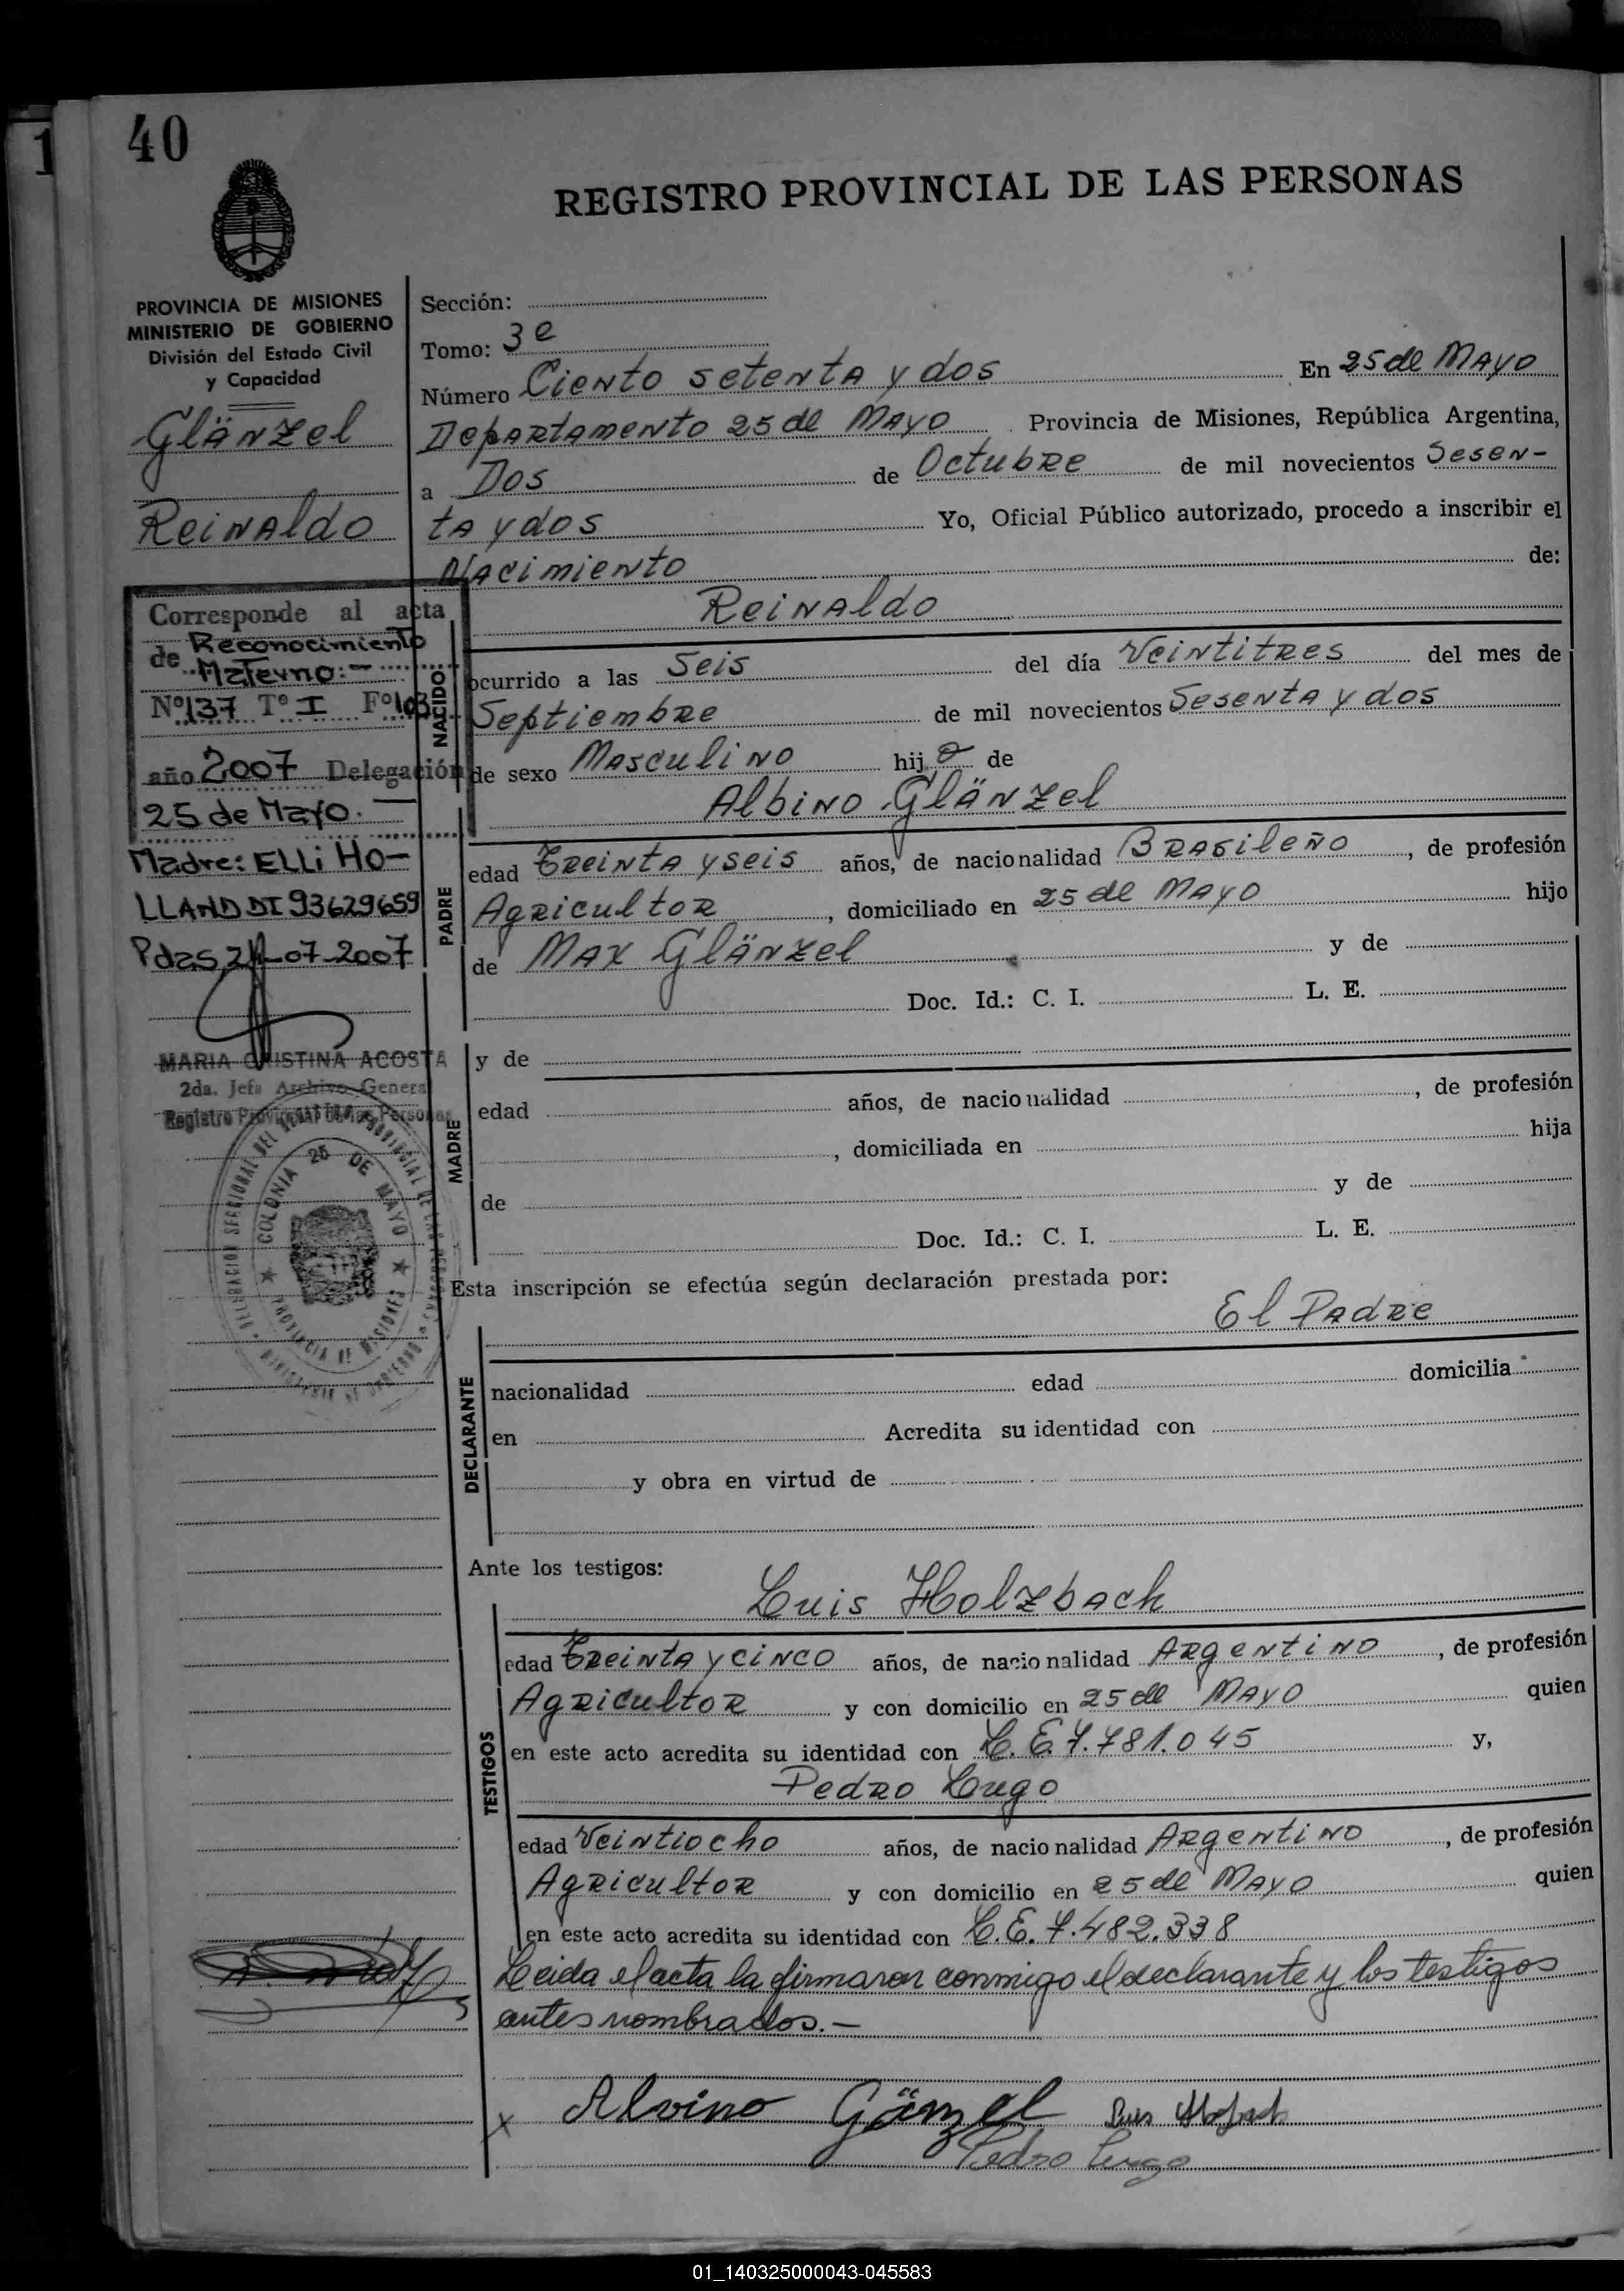 40
1
REGISTRO PROVINCIAL DE LAS PERSONAS
PROVINCIA DE MISIONES
MINISTERIO DE GOBIERNO
División del Estado Civil
y Capacidad
Glänzel
Reinaldo
Corresponde al acta
de Reconocimiento
Materno:-
Nº 137 Tº I Fº 103
año 2007 Delegación
25 de Mayo. —
Madre: ELLi HO-
LLAND DI 93629659
Pdas, 24-07-2007
MARIA CRISTINA ACOSTA
2da. Jefa Archivo General
Registro Provincial de las Personas
COLONIA 25 DE MAYO
PROVINCIA DE MISIONES
Sección:
Tomo: 3e
Número Ciento setenta y dos En 25 de Mayo
Departamento 25 de Mayo Provincia de Misiones, República Argentina,
a Dos de Octubre de mil novecientos Sesen-
ta y dos Yo, Oficial Público autorizado, procedo a inscribir el
Nacimiento de:
Reinaldo
NACIDO
ocurrido a las Seis del día Veintitres del mes de
Septiembre de mil novecientos Sesenta y dos
de sexo Masculino hijo de
Albino Glänzel
PADRE
edad Treinta y seis años, de nacionalidad Brasileño, de profesión
Agricultor, domiciliado en 25 de Mayo hijo
de Max Glänzel y de
Doc. Id.: C. I. L. E.
MADRE
y de
edad años, de nacionalidad , de profesión
, domiciliada en hija
de y de
Doc. Id.: C. I. L. E.
Esta inscripción se efectúa según declaración prestada por:
El Padre
DECLARANTE
nacionalidad edad domicilia
en Acredita su identidad con
y obra en virtud de
Ante los testigos:
Luis Holzbach
TESTIGOS
edad Treinta y cinco años, de nacionalidad Argentino, de profesión
Agricultor y con domicilio en 25 de Mayo quien
en este acto acredita su identidad con L.E. 7.781.045 y,
Pedro Lugo
edad Veintiocho años, de nacionalidad Argentino, de profesión
Agricultor y con domicilio en 25 de Mayo quien
en este acto acredita su identidad con L.E. 7.482.338
Leida el acta la firmaron conmigo el declarante y los testigos
antes nombrados.—
x Alvino Gänzel Luis
Pedro Lugo
01_140325000043-045583